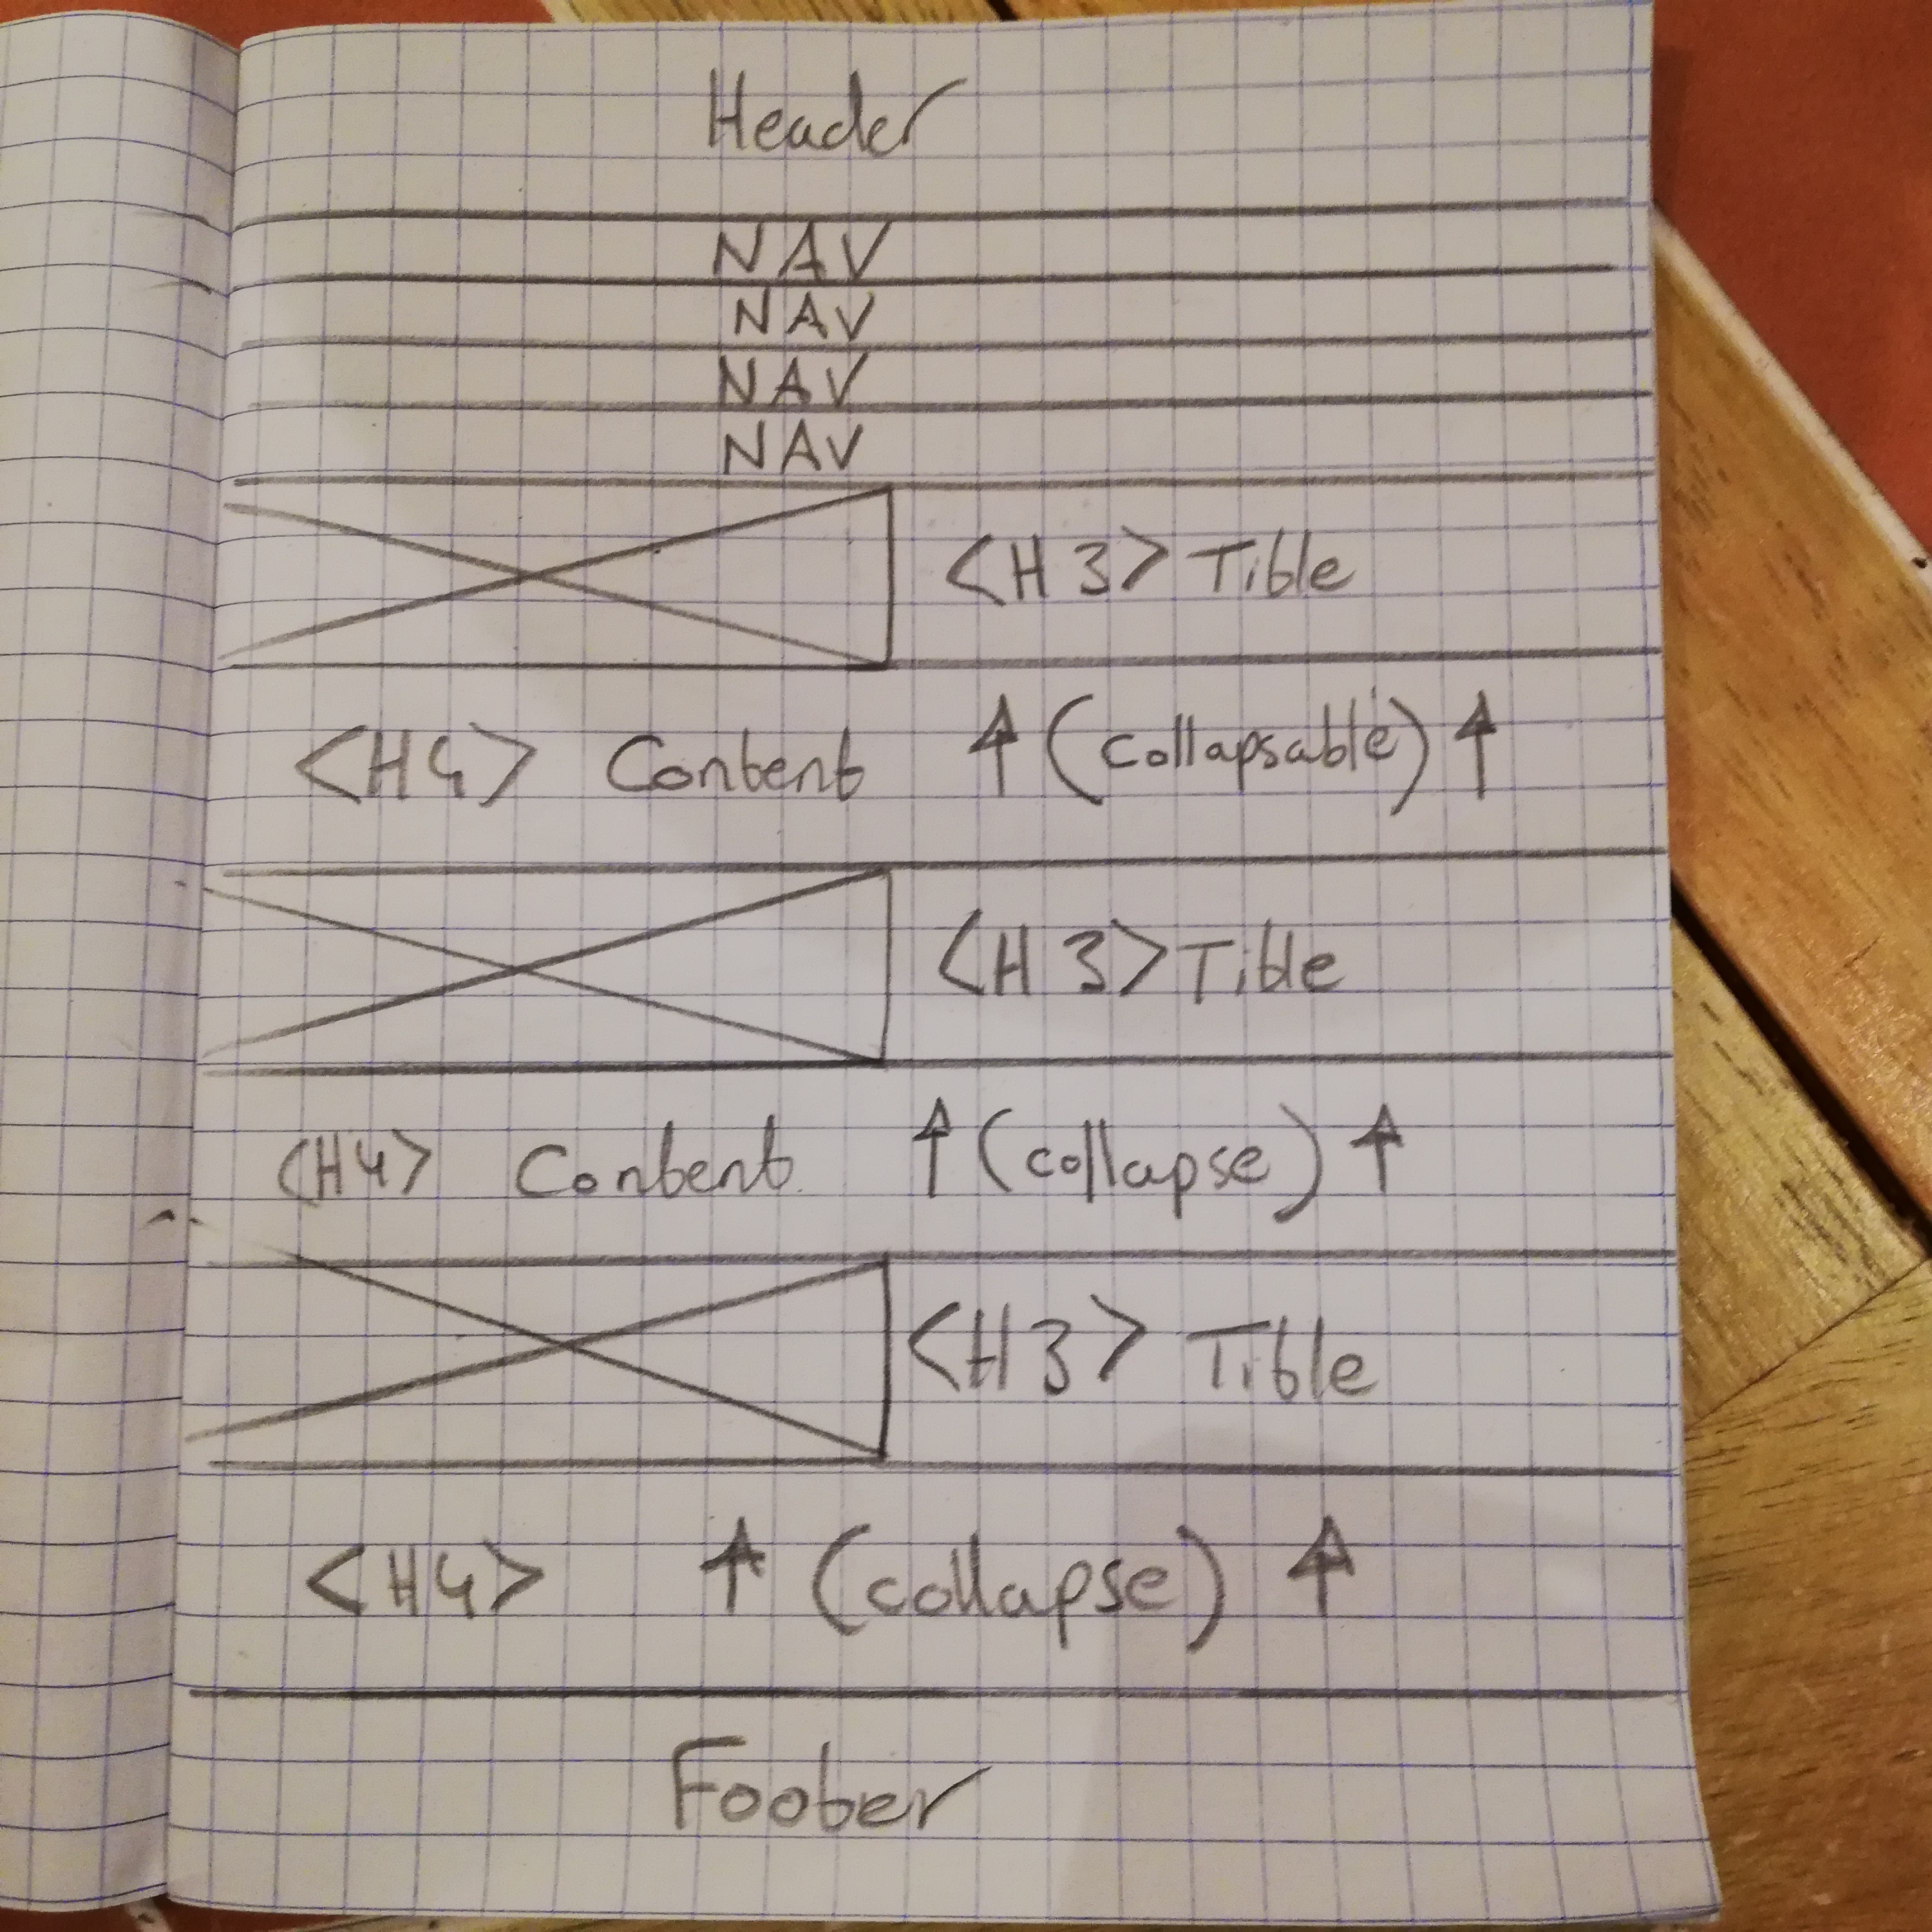 Header
NAV
NAV
NAV
NAV
<H3> Title
<H4> Content ↑ (collapsable) ↑
<H3> Title
<H4> Content ↑ (collapse) ↑
<H3> Title
<H4> ↑ (collapse) ↑
Footer